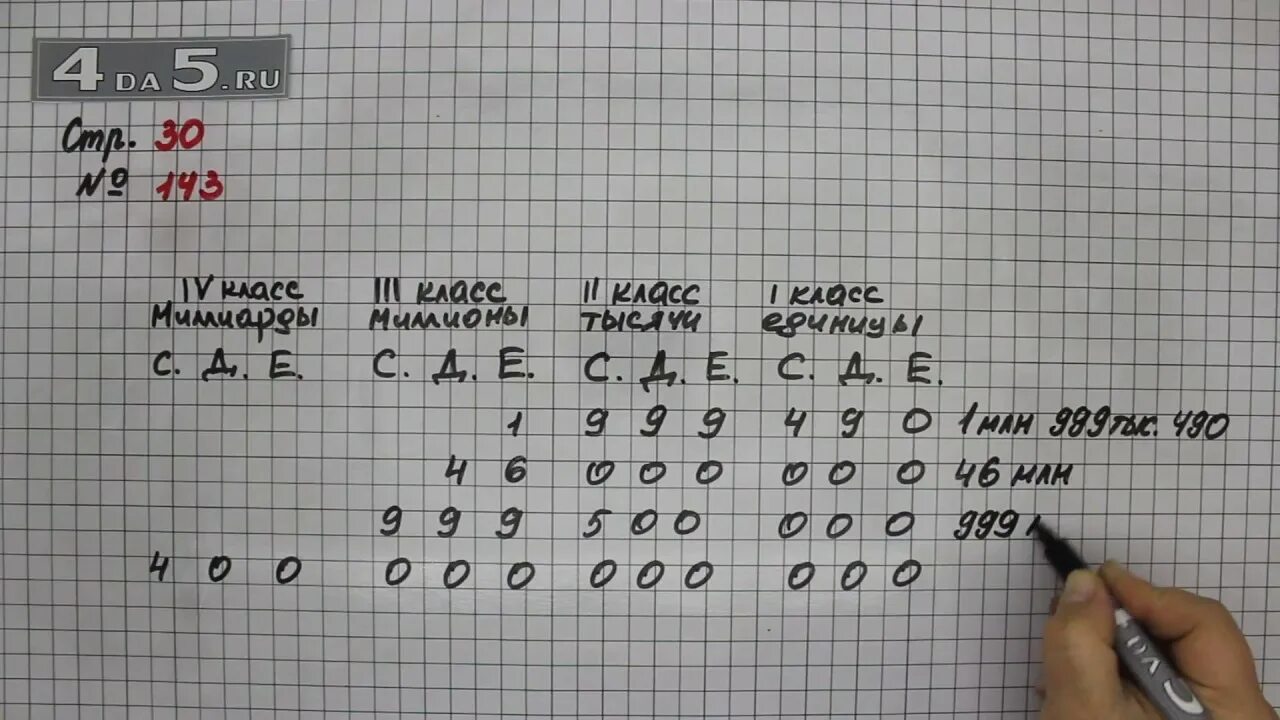 4DA5.RU
Стр. 30
№ 143
IV класс III класс II класс I класс
Миллиарды миллионы тысячи единицы
С. Д. Е. С. Д. Е. С. Д. Е. С. Д. Е.
1 9 9 9 4 9 0 1 млн 999 тыс. 490
4 6 0 0 0 0 0 0 46 млн
9 9 9 5 0 0 0 0 0 999
4 0 0 0 0 0 0 0 0 0 0 0
DA 5